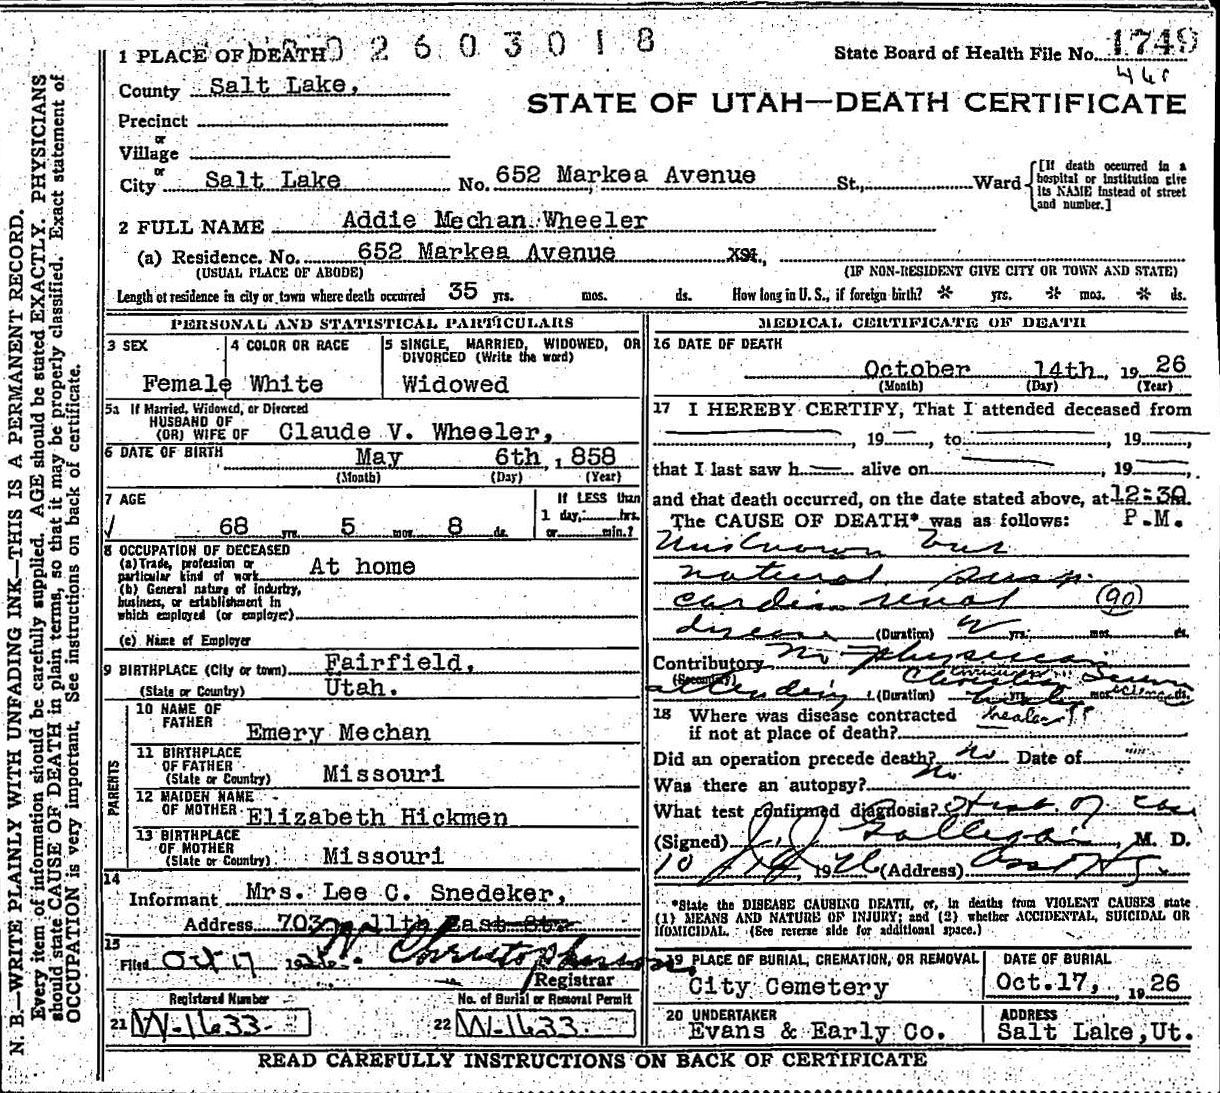 2603018
1 PLACE OF DEATH
State Board of Health File No. 1749
County Salt Lake,
STATE OF UTAH—DEATH CERTIFICATE
Precinct
or
Village
or
City Salt Lake No. 652 Markea Avenue St., Ward [If death occurred in a hospital or institution give its NAME instead of street and number.]
2 FULL NAME Addie Mechan Wheeler
(a) Residence. No. 652 Markea Avenue xSt.,
(USUAL PLACE OF ABODE) (IF NON-RESIDENT GIVE CITY OR TOWN AND STATE)
Length of residence in city or town where death occurred 35 yrs. mos. ds. How long in U. S., if foreign birth? * yrs. * mos. * ds.
PERSONAL AND STATISTICAL PARTICULARS
3 SEX
Female
4 COLOR OR RACE
White
5 SINGLE, MARRIED, WIDOWED, OR
DIVORCED (Write the word)
Widowed
5a If Married, Widowed, or Divorced
HUSBAND OF
(OR) WIFE OF Claude V. Wheeler,
6 DATE OF BIRTH May 6th, 1858
(Month) (Day) (Year)
7 AGE
√ 68 yrs. 5 mos. 8 ds.
If LESS than
1 day, hrs.
or min.?
8 OCCUPATION OF DECEASED
(a) Trade, profession or
particular kind of work At home
(b) General nature of industry,
business, or establishment in
which employed (or employer)
(c) Name of Employer
9 BIRTHPLACE (City or town) Fairfield,
(State or Country) Utah.
PARENTS
10 NAME OF
FATHER
Emery Mechan
11 BIRTHPLACE
OF FATHER
(State or Country) Missouri
12 MAIDEN NAME
OF MOTHER Elizabeth Hickmen
13 BIRTHPLACE
OF MOTHER
(State or Country) Missouri
14
Informant Mrs. Lee C. Snedeker,
Address 703 11th East St.
15
Filed Oct 17 1926. W. Christopherson
Registrar
Registered Number
21 W-1633
No. of Burial or Removal Permit
22 W-1633
MEDICAL CERTIFICATE OF DEATH
16 DATE OF DEATH
October 14th, 1926
(Month) (Day) (Year)
17 I HEREBY CERTIFY, That I attended deceased from
, 19 , to , 19
that I last saw h alive on , 19
and that death occurred, on the date stated above, at 12:30 m.
P.M.
The CAUSE OF DEATH* was as follows:
Unknown but
natural
cardio renal (90)
disease (Duration) yrs. mos. ds.
Contributory No physician
(Secondary)
attending (Duration) yrs. mos. ds.
18 Where was disease contracted
if not at place of death?
Did an operation precede death? no Date of
Was there an autopsy? no
What test confirmed diagnosis? Hist. of case
(Signed) , M. D.
10 1926 (Address)
*State the DISEASE CAUSING DEATH, or, in deaths from VIOLENT CAUSES state
(1) MEANS AND NATURE OF INJURY; and (2) whether ACCIDENTAL, SUICIDAL OR
HOMICIDAL. (See reverse side for additional space.)
19 PLACE OF BURIAL, CREMATION, OR REMOVAL
City Cemetery
DATE OF BURIAL
Oct.17, 1926
20 UNDERTAKER
Evans & Early Co.
ADDRESS
Salt Lake, Ut.
READ CAREFULLY INSTRUCTIONS ON BACK OF CERTIFICATE
N. B.—WRITE PLAINLY WITH UNFADING INK—THIS IS A PERMANENT RECORD.
Every item of information should be carefully supplied. AGE should be stated EXACTLY. PHYSICIANS
should state CAUSE OF DEATH in plain terms, so that it may be properly classified. Exact statement of
OCCUPATION is very important. See instructions on back of certificate.